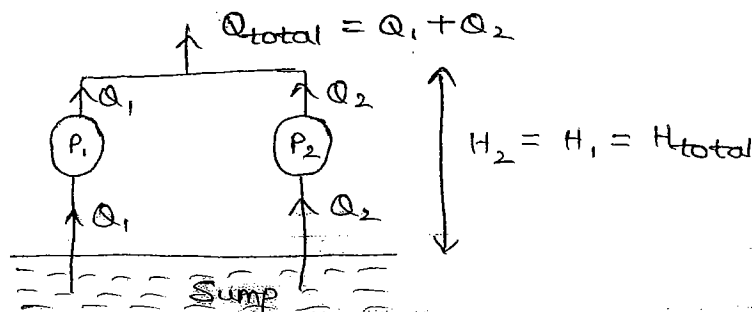 Q_total = Q_1 + Q_2
Q_1 Q_2
P_1 P_2
H_2 = H_1 = H_total
Q_1 Q_2
Sump